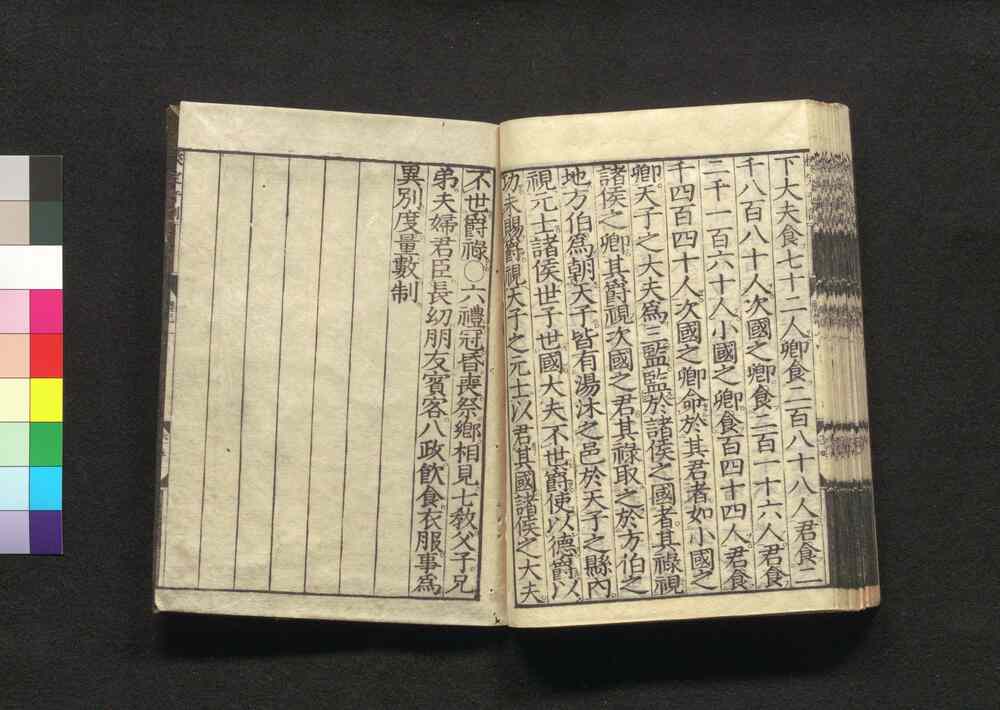 下大夫食七十二人卿食二百八十八人君食二
千八百八十人次國之卿食二百一十六人君食
二千一百六十人小國之卿食百四十四人君食
千四百四十人次國之卿命於其君者如小國之
卿天子之大夫爲三監監於諸侯之國者其祿視
諸侯之卿其爵視次國之君其祿取之於方伯之
地方伯爲朝天子皆有湯沐之邑於天子之縣內
視元士諸侯世子世國大夫不世爵使以德爵以
功未賜爵視天子之元士以君其國諸侯之大夫
不世爵祿○六禮冠昏喪祭鄉相見七敎父子兄
弟夫婦君臣長幼朋友賓客八政飮食衣服事爲
異別度量數制